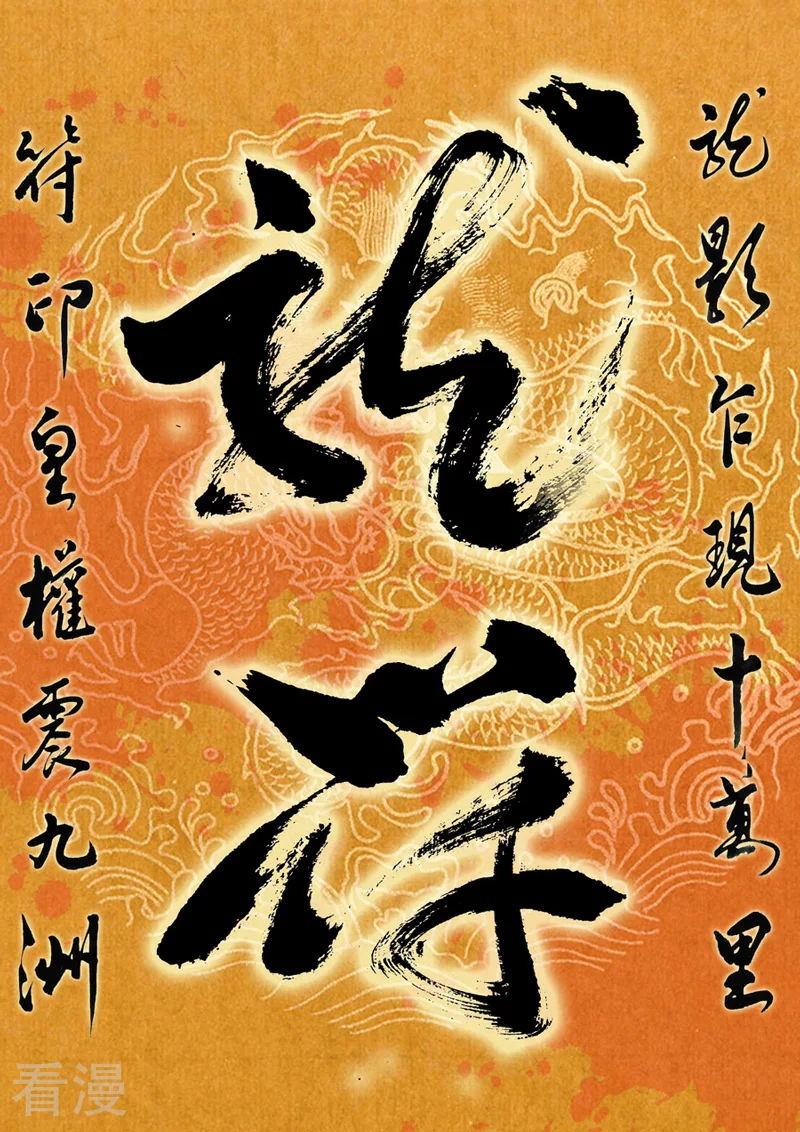 龍符
龍影乍現十萬里
符印皇權震九洲
看漫